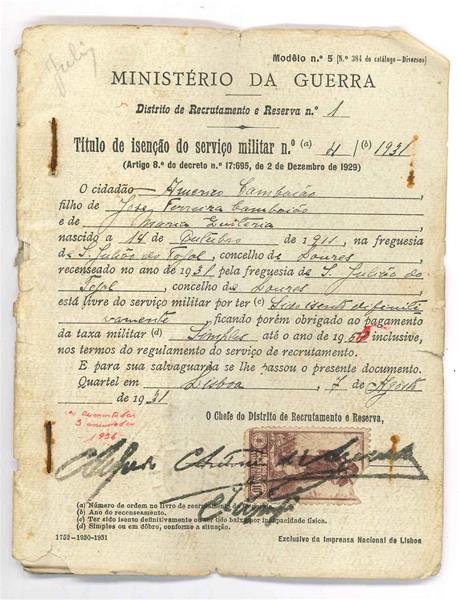 Modêlo n.º 5 (N.º 384 do catálogo—Diversos)
MINISTÉRIO DA GUERRA
Distrito de Recrutamento e Reserva n.º 1
Título de isenção do serviço militar n.º (a) 4 / (b) 1931
(Artigo 8.º do decreto n.º 17:695, de 2 de Dezembro de 1929)
O cidadão Americo Cambaião
filho de José Ferreira Cambaião
e de Maria Quiteria
nascido a 14 de Outubro de 1911, na freguesia
de S. Julião do Tojal, concelho de Loures
recenseado no ano de 1931 pela freguesia de S. Julião do
Tojal, concelho de Loures
está livre do serviço militar por ter (c) Sido isento definiti
vamente, ficando porém obrigado ao pagamento
da taxa militar (d) Simples até o ano de 195 inclusive,
nos termos do regulamento do serviço de recrutamento.
E para sua salvaguarda se lhe passou o presente documento.
Quartel em Lisboa, 7 de Agosto
de 1931
O Chefe do Distrito de Recrutamento e Reserva,
1936
(a) Número de ordem no livro de recrutamento
(b) Ano do recenseamento.
(c) Ter sido isento definitivamente ou ter tido baixa por incapacidade física.
(d) Simples ou em dôbro, conforme a situação.
1752-1930-1931 Exclusivo da Imprensa Nacional de Lisboa